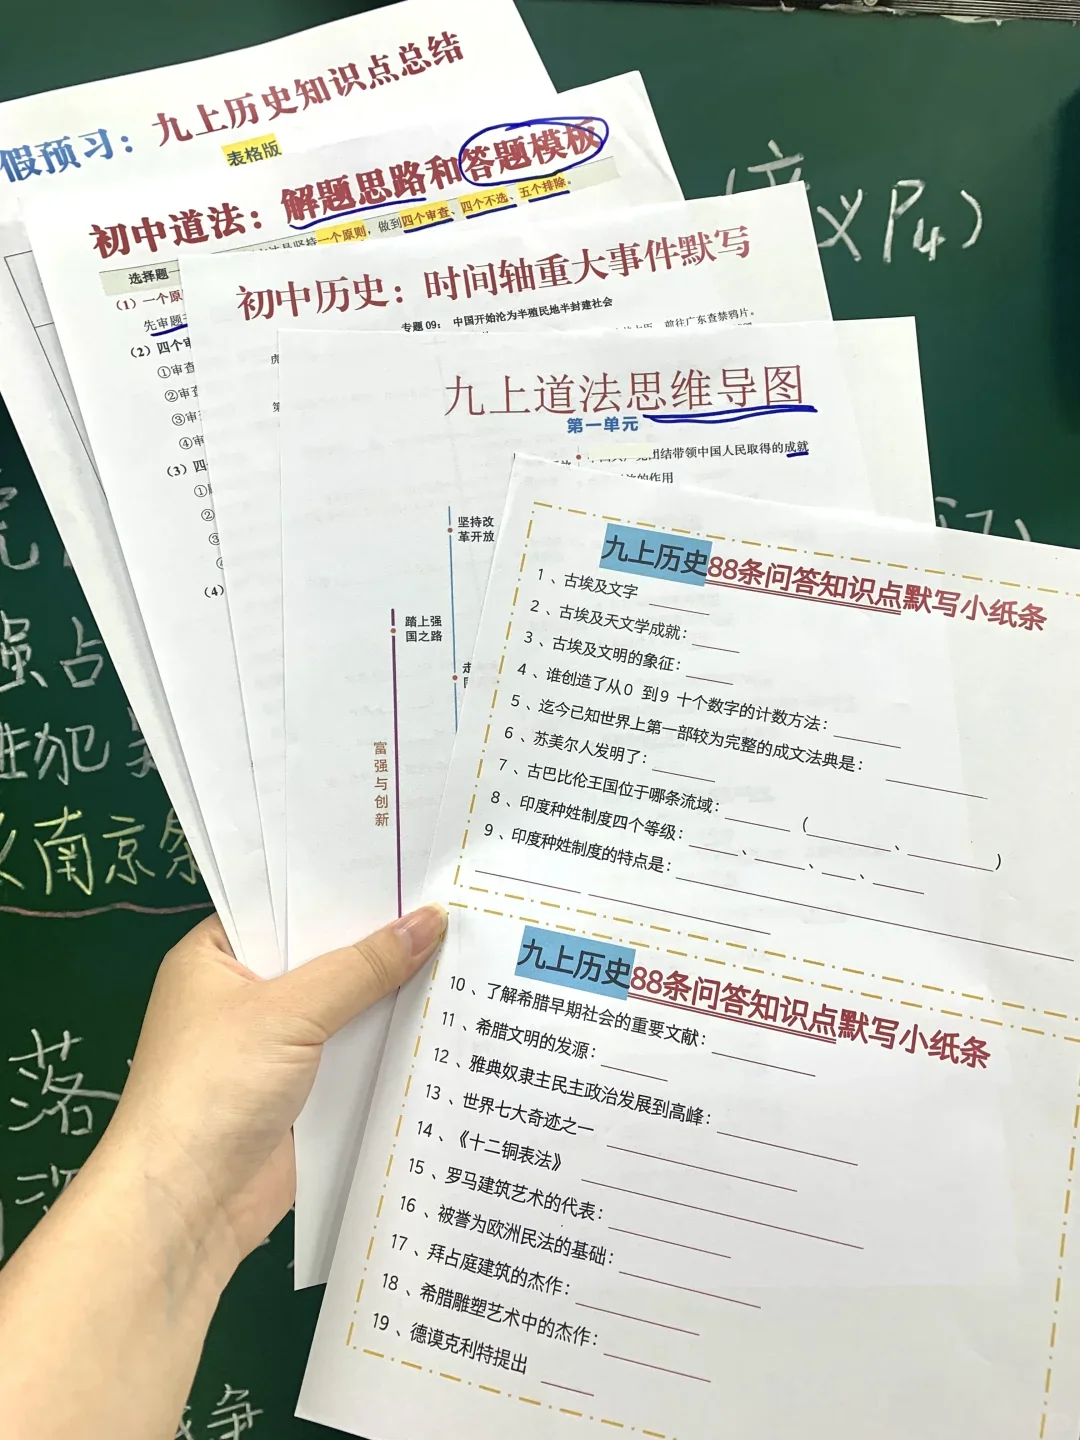 假预习：九上历史知识点总结
表格版
初中道法：解题思路和答题模板
坚持一个原则，做到四个审查、四个不选、五个排除。
选择题一
（1）一个原
先审题
（2）四个审
①审查
②审
③审
④审
（3）四
①
②
③
（4）
初中历史：时间轴重大事件默写
专题 09： 中国开始沦为半殖民地半封建社会
前往广东查禁鸦片。
虎
第
九上道法思维导图
第一单元
团结带领中国人民取得的成就
的作用
坚持改
革开放
踏上强
国之路
富强与创新
九上历史88条问答知识点默写小纸条
1 、古埃及文字
2 、古埃及天文学成就：
3 、古埃及文明的象征：
4 、谁创造了从0 到9 十个数字的计数方法：
5 、迄今已知世界上第一部较为完整的成文法典是：
6 、苏美尔人发明了：
7 、古巴比伦王国位于哪条流域： （ 、 ）
8 、印度种姓制度四个等级： 、 、 、
9 、印度种姓制度的特点是：
九上历史88条问答知识点默写小纸条
10 、了解希腊早期社会的重要文献：
11 、希腊文明的发源：
12 、雅典奴隶主民主政治发展到高峰：
13 、世界七大奇迹之一
14 、《十二铜表法》
15 、罗马建筑艺术的代表：
16 、被誉为欧洲民法的基础：
17 、拜占庭建筑的杰作：
18 、希腊雕塑艺术中的杰作：
19 、德谟克利特提出
义P4）
强占
犯
南京
落
争